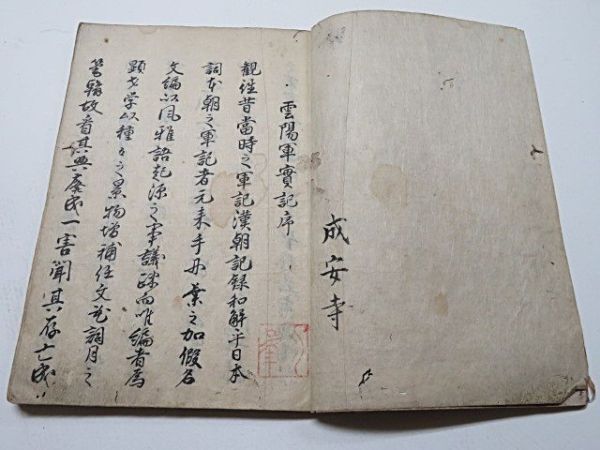 成安寺
雲陽軍實記序
観往昔當時之軍記漢朝記録和解平日本
詞本朝之軍記者元来手爾葉之加假名
文編以風雅語起源之事議味而唯編者為
顕才学以種々之景物増補任文花詞月之
筆端故看其興廃或一害聞其存亡或